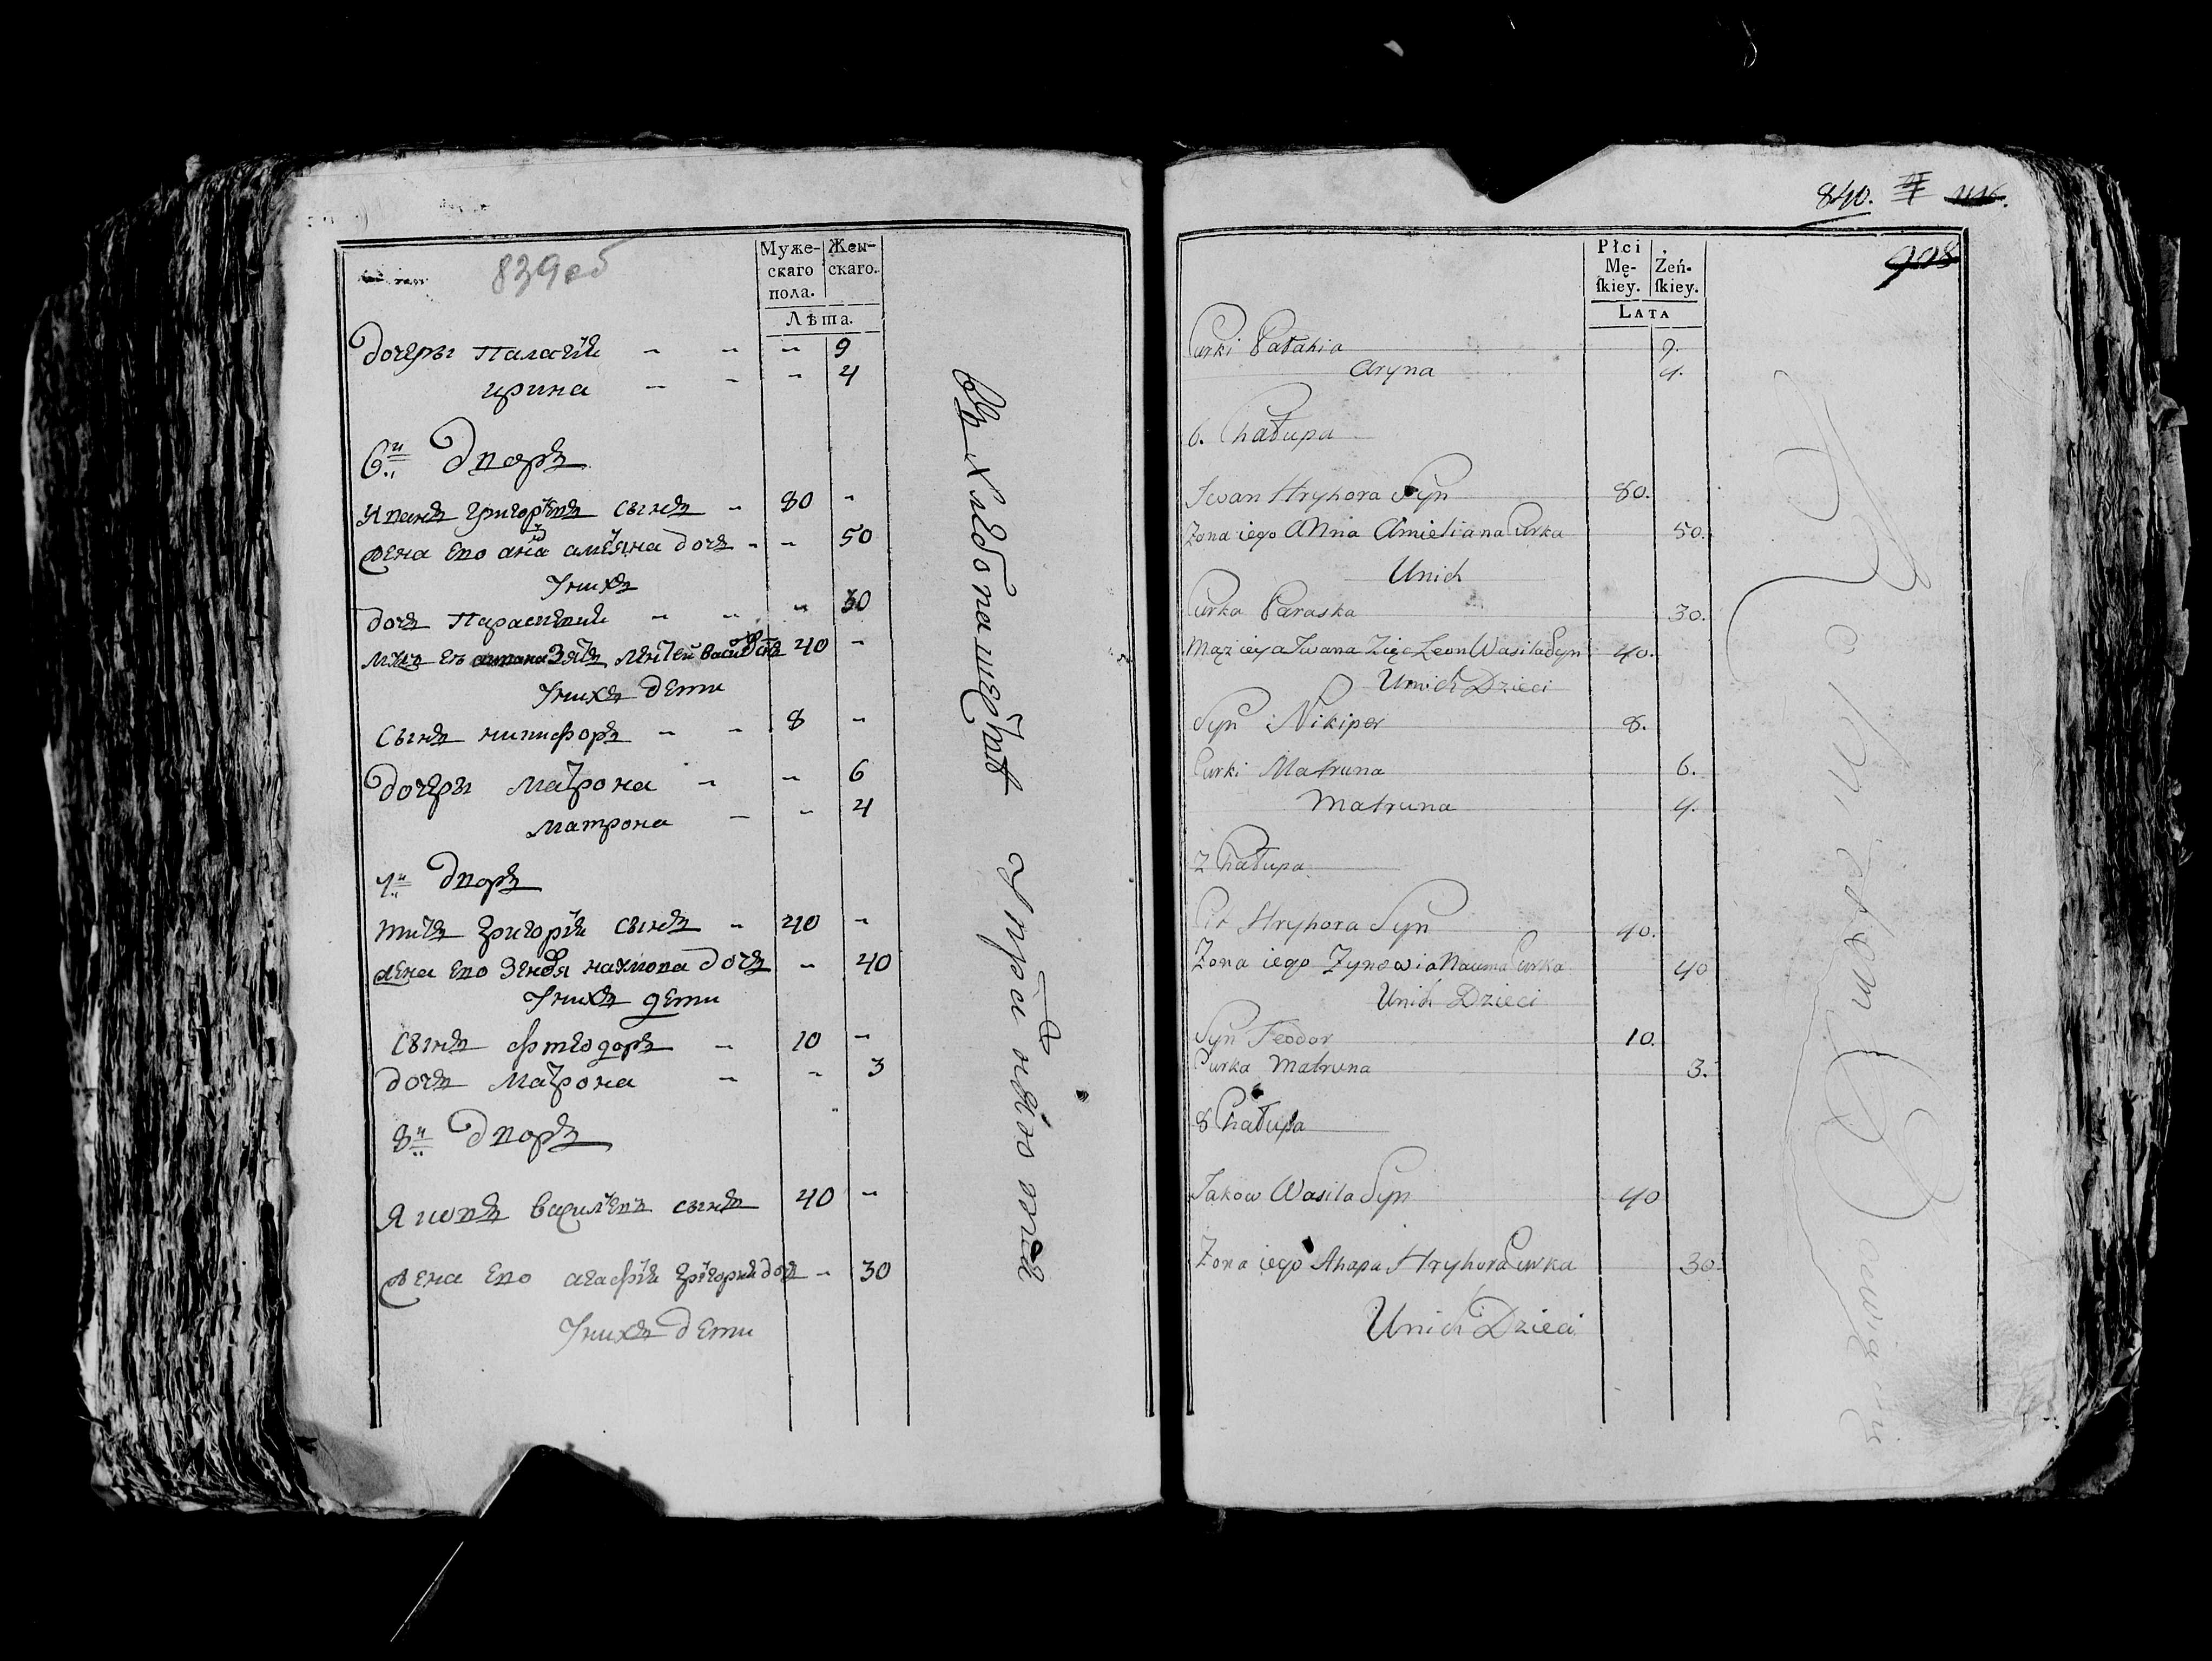 839об
Муже-
скаго
пола.
Жен-
скаго.
Лѣта.
дочеры Палагія - - - 9
ирина - - - 4
6й дворъ
Иванъ григорьевъ сынъ - 80 -
жена ево анна амеляна дочь - - 50
У нихъ
дочь Параскевия - - - 30
мужъ ея зять леѡнтей васильевъ сынъ 40 -
У нихъ дети
Сынъ никифоръ - - 8 -
дочеры Матрона - - 6
матрона - - 4
7й дворъ
титъ григорія сынъ - 40 -
жена ево Зеновя наумова дочь - 40
У нихъ дети
Сынъ фтеодоръ - 10 -
дочь Матрона - - 3
8й дворъ
Яковъ васильевъ сынъ 40 -
жена ево агафія григория дочь - 30
У нихъ дети
840.
908
Płci
Mę-
ſkiey.
Żeń-
ſkiey.
LATA
Curki Pałahia 9.
Aryna 4.
6. Chałupa
Iwan Hryhora Syn 80.
Zona iego Anna Amieliana Curka 50.
Unich
Curka Paraska 30.
Mąż ieya Iwana Zięc Leon Wasila Syn 40.
Unich Dzieci
Syn Nikiper 8.
Curki Matruna 6.
Matruna 4.
7 Chałupa
Cit Hryhora Syn 40.
Zona iego Zynowia Nauma Curka 40
Unich Dzieci
Syn Feodor 10.
Curka Matruna 3.
8 Chałupa
Jakow Wasila Syn 40
Zona iego Ahapa Hryhora Curka 30.
Unich Dzieci